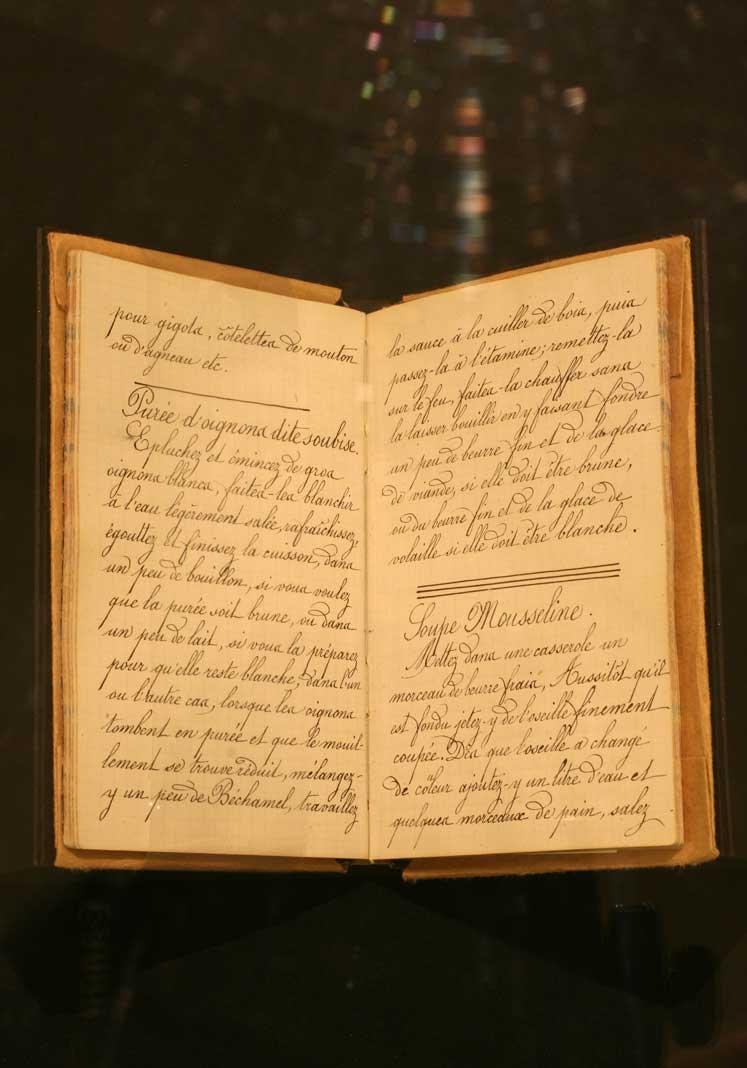 pour gigots, côtelettes de mouton
ou d'agneau etc.
Purée d'oignons dite soubise.
Epluchez et émincez de gros
oignons blancs, faites-les blanchir
à l'eau légèrement salée, rafraîchissez,
égouttez et finissez la cuisson, dans
un peu de bouillon, si vous voulez
que la purée soit brune, ou dans
un peu de lait, si vous la préparez
pour qu'elle reste blanche; dans l'un
ou l'autre cas, lorsque les oignons
tombent en purée et que le mouil-
lement se trouve réduit, mélangez-
y un peu de Béchamel, travaillez
la sauce à la cuiller de bois, puis
passez-la à l'étamine; remettez-la
sur le feu, faites-la chauffer sans
la laisser bouillir en y faisant fondre
un peu de beurre fin et de la glace
de viande, si elle doit être brune,
ou du beurre fin et de la glace de
volaille si elle doit être blanche.
Soupe Mousseline.
Mettez dans une casserole un
morceau de beurre frais, Aussitôt qu'il
est fondu jetez-y de l'oseille finement
coupée. Dès que l'oseille a changé
de coleur ajoutez-y un litre d'eau et
quelques morceaux de pain, salez